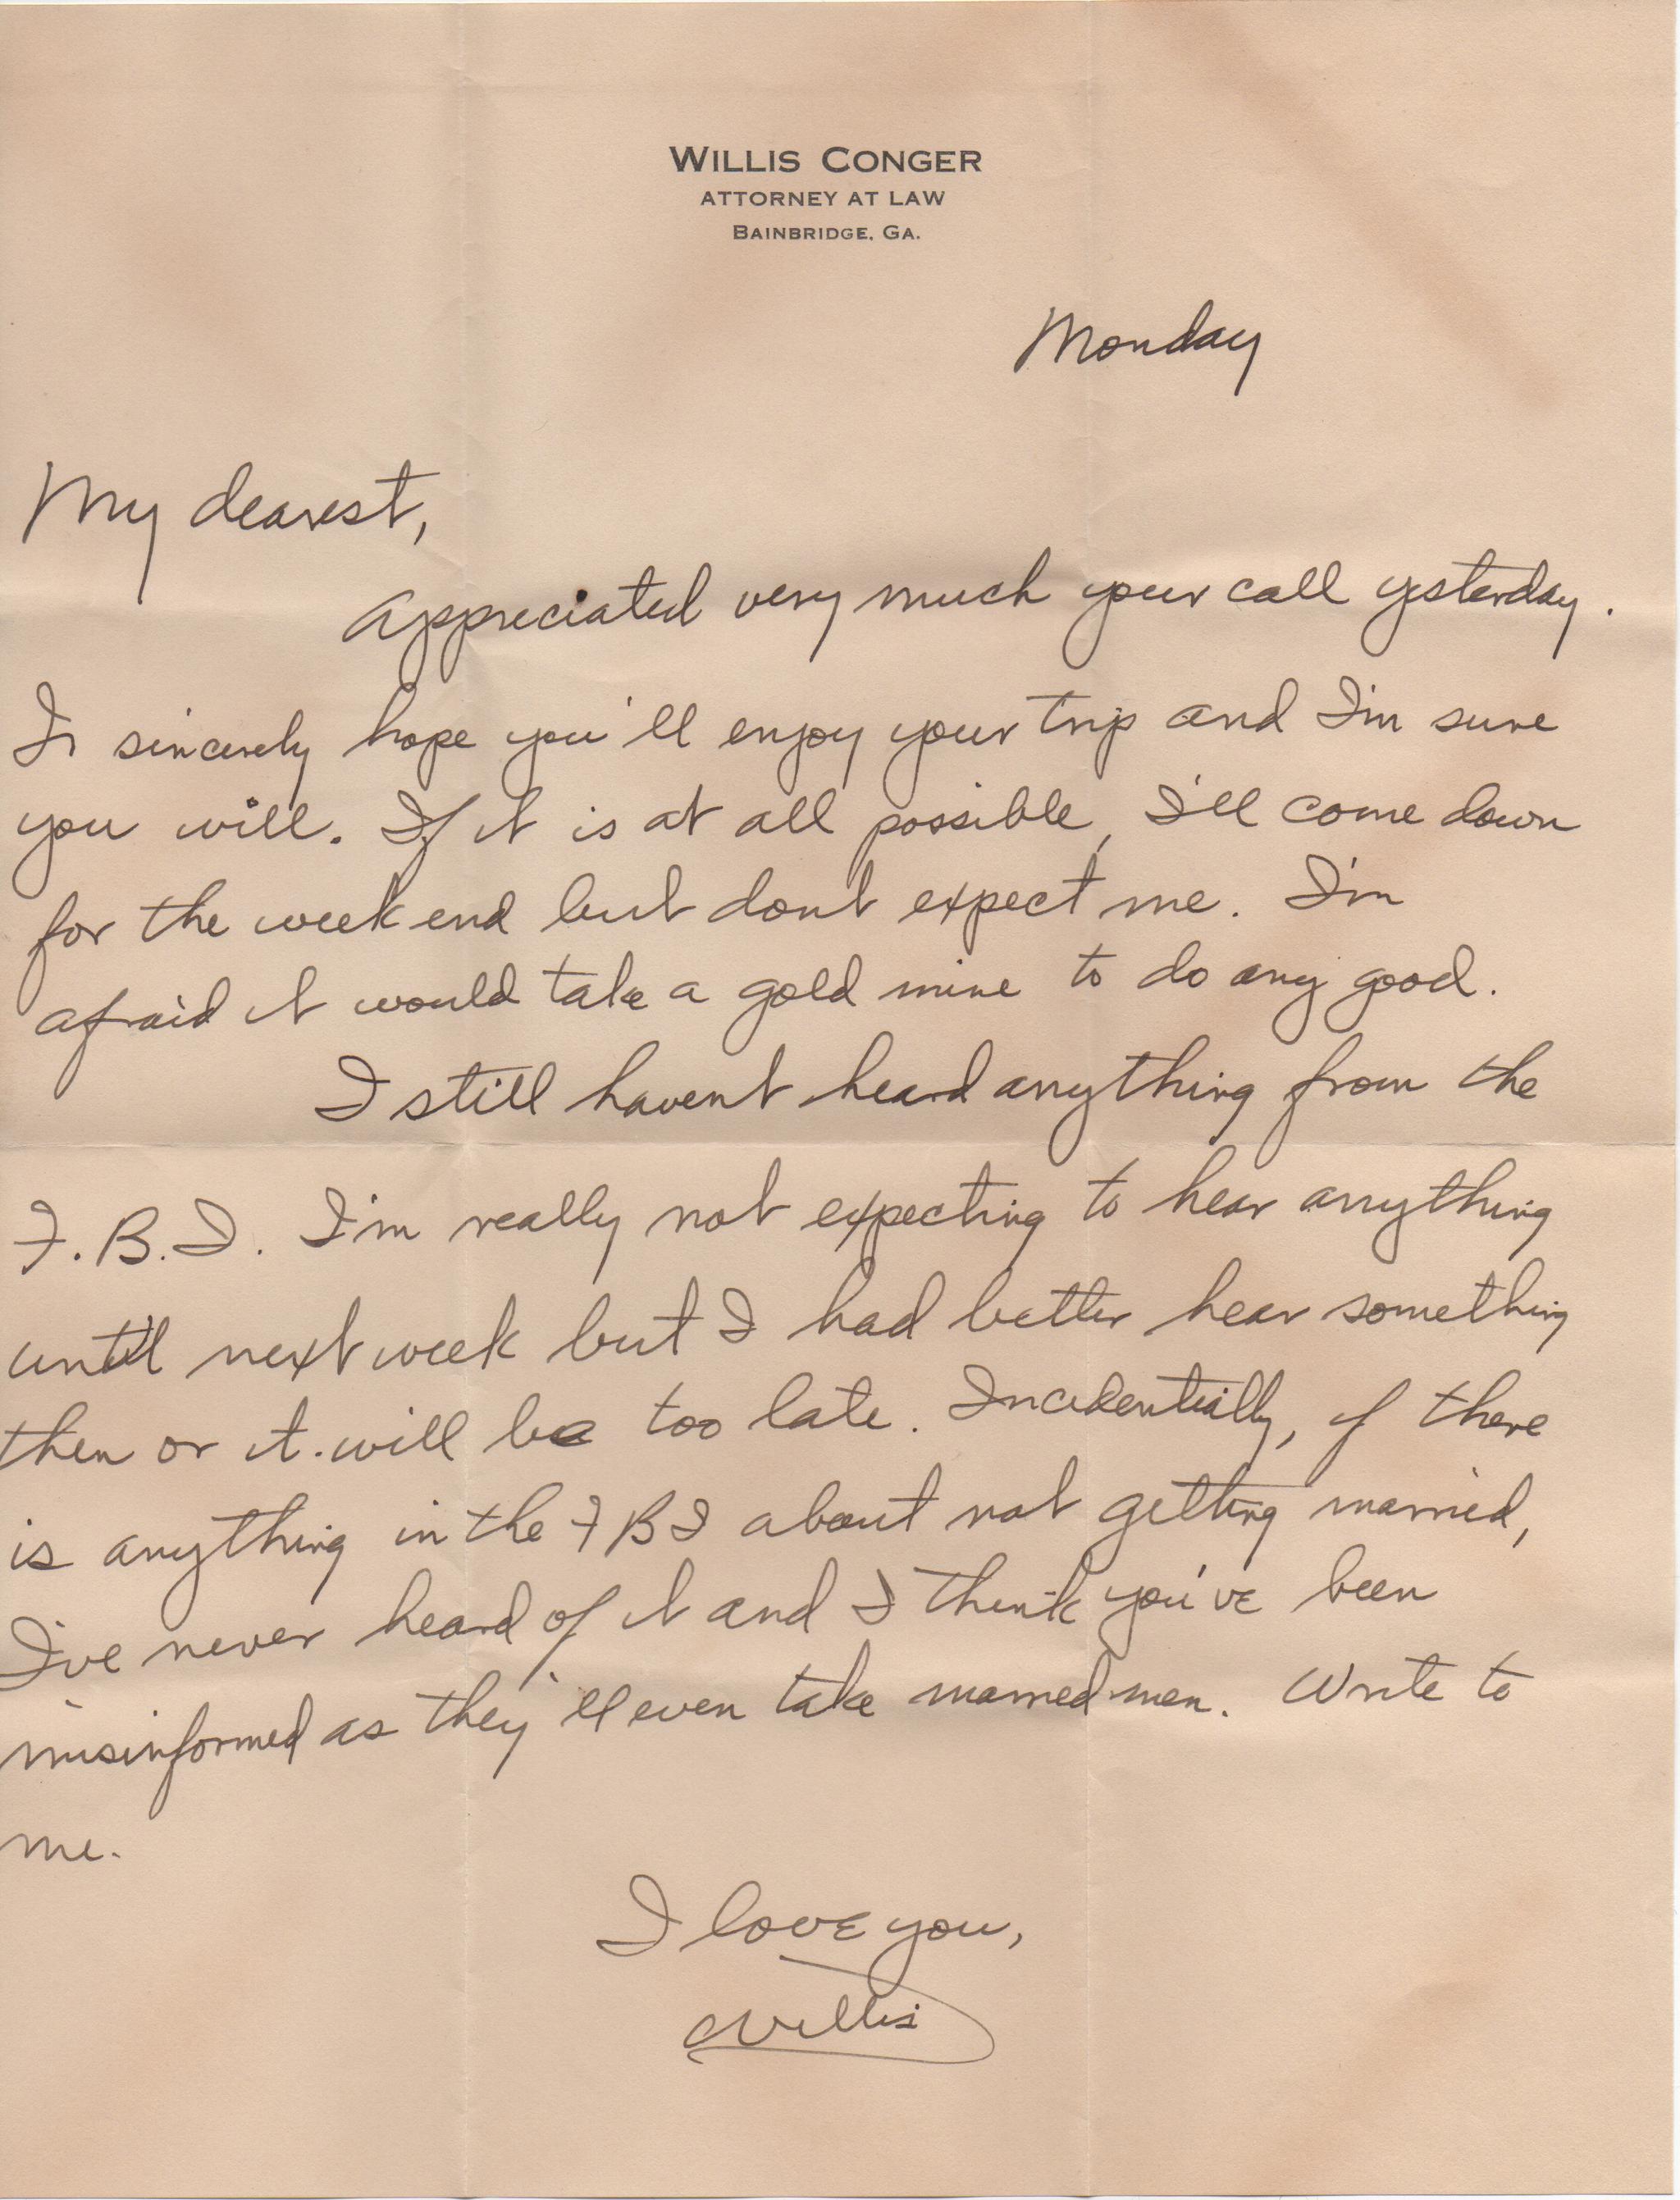 WILLIS CONGER
ATTORNEY AT LAW
BAINBRIDGE, GA.
Monday
My dearest,
Appreciated very much your call yesterday.
I sincerely hope you'll enjoy your trip and I'm sure
you will. If it is at all possible, I'll come down
for the week end but dont expect me. I'm
afraid it would take a gold mine to do any good.
I still havent heard anything from the
F.B.I. I'm really not expecting to hear anything
until next week but I had better hear something
then or it will be too late. Incidentially, if there
is anything in the FBI about not getting married,
I've never heard of it and I think you've been
misinformed as they'll even take married men. Write to
me.
I love you,
Willis